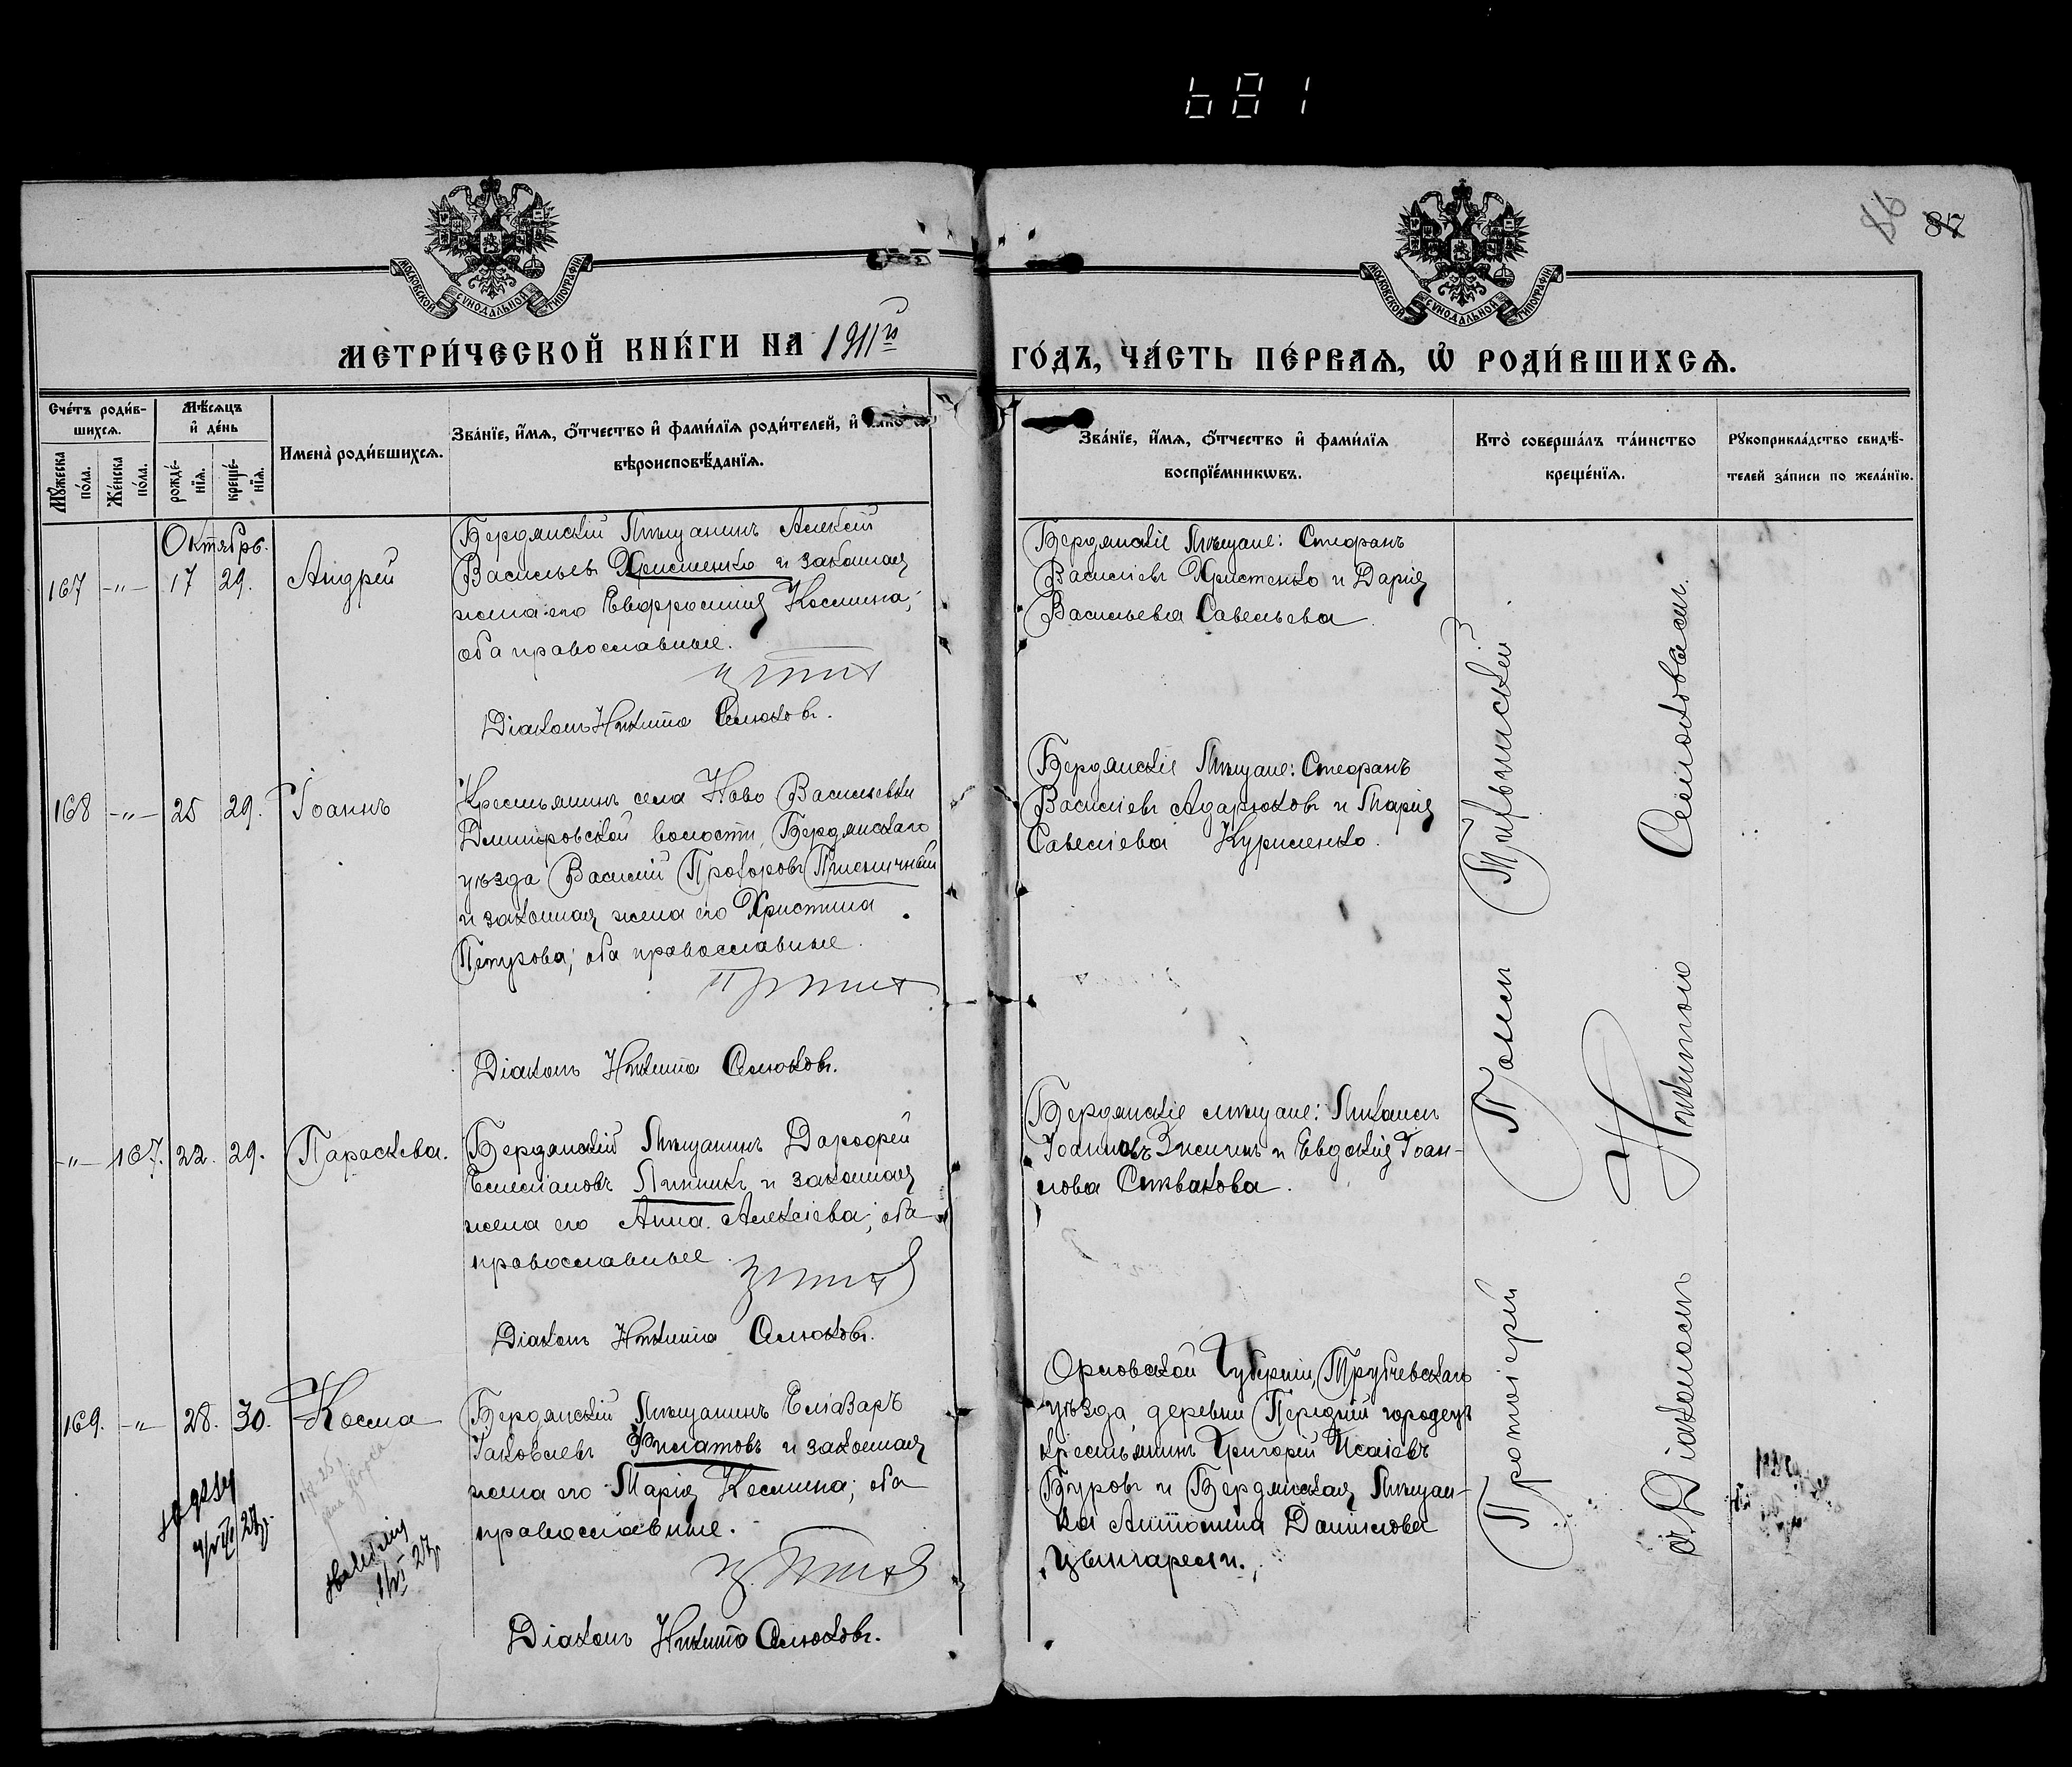 681
86 87
МОСКОВСКОЙ СѴНОДАЛЬНОЙ ТИПОГРАФІИ
МОСКОВСКОЙ СѴНОДАЛЬНОЙ ТИПОГРАФІИ
МЕТРИ́ЧЕСКОЙ КНИ́ГИ НА 1911й
ГО́ДЪ, ЧА́СТЬ ПЕ́РВАѦ, Ѡ РОДИ́ВШИХСѦ.
Сче́тъ роди́в-
шихсѧ.
Мꙋ́жеска
по́ла.
Же́нска
по́ла.
Мѣ́сѧцъ
и де́нь
рожде́-
нїѧ.
креще́-
нїѧ.
Имена̀ роди́вшихсѧ.
Зва́нїе, и́мѧ, о́тчество и фами́лїѧ роди́телей, и
вѣроисповѣ́данїѧ.
Зва́нїе, и́мѧ, о́тчество и фами́лїѧ
воспрїе́мникѡвъ.
Кто̀ соверша́лъ та́инство
креще́нїѧ.
Рꙋкоприкла́дство свидѣ́-
телей за́писи по жела́нїю.
Октябрь.
167 -"- 17 29. Андрей
Бердянскій Мѣщанинъ Алексій
Васильевъ Христенко и законная
жена его Евфросинія Космина;
оба православные.
Діаконъ Никита Слюсовъ.
Бердянскіе Мѣщане: Стефанъ
Василіевъ Христенко и Дарія
Васильева Савельева.
168 -"- 25 29. Іоаннъ
Крестьянинъ села Ново Васильевки
Дмитровской волости, Бердянскаго
уѣзда Василій Прохоровъ Пшеничный
и законная жена его Христина
Петрова; оба православные.
Діаконъ Никита Слюсовъ.
Бердянскіе Мѣщане: Стефанъ
Василіевъ Адарюковъ и Марія
Савеліева Куриленко.
-"- 167. 22. 29. Параскева.
Бердянскій Мѣщанинъ Дорофей
Емеліановъ Линникъ и законная
жена его Анна Алексіева; оба
православные.
Діаконъ Никита Слюсовъ.
Бердянскіе мѣщане: Михаилъ
Іоанновъ и Евдокія Іоан-
нова
169. -"- 28. 30. Косма
Бердянскій Мѣщанинъ Елеазаръ
Іаковлевъ Филатовъ и законная
жена его Марія Космина; оба
православные.
Діаконъ Никита Слюсовъ.
Орловской Губерніи, Трубчевскаго
уѣзда, деревни Передній городецъ
крестьянинъ Григорій Исаіевъ
Буровъ и Бердянская Мѣщан-
ка Антонина Даниілова
Протоіерей
съ Діакономъ
Никитою